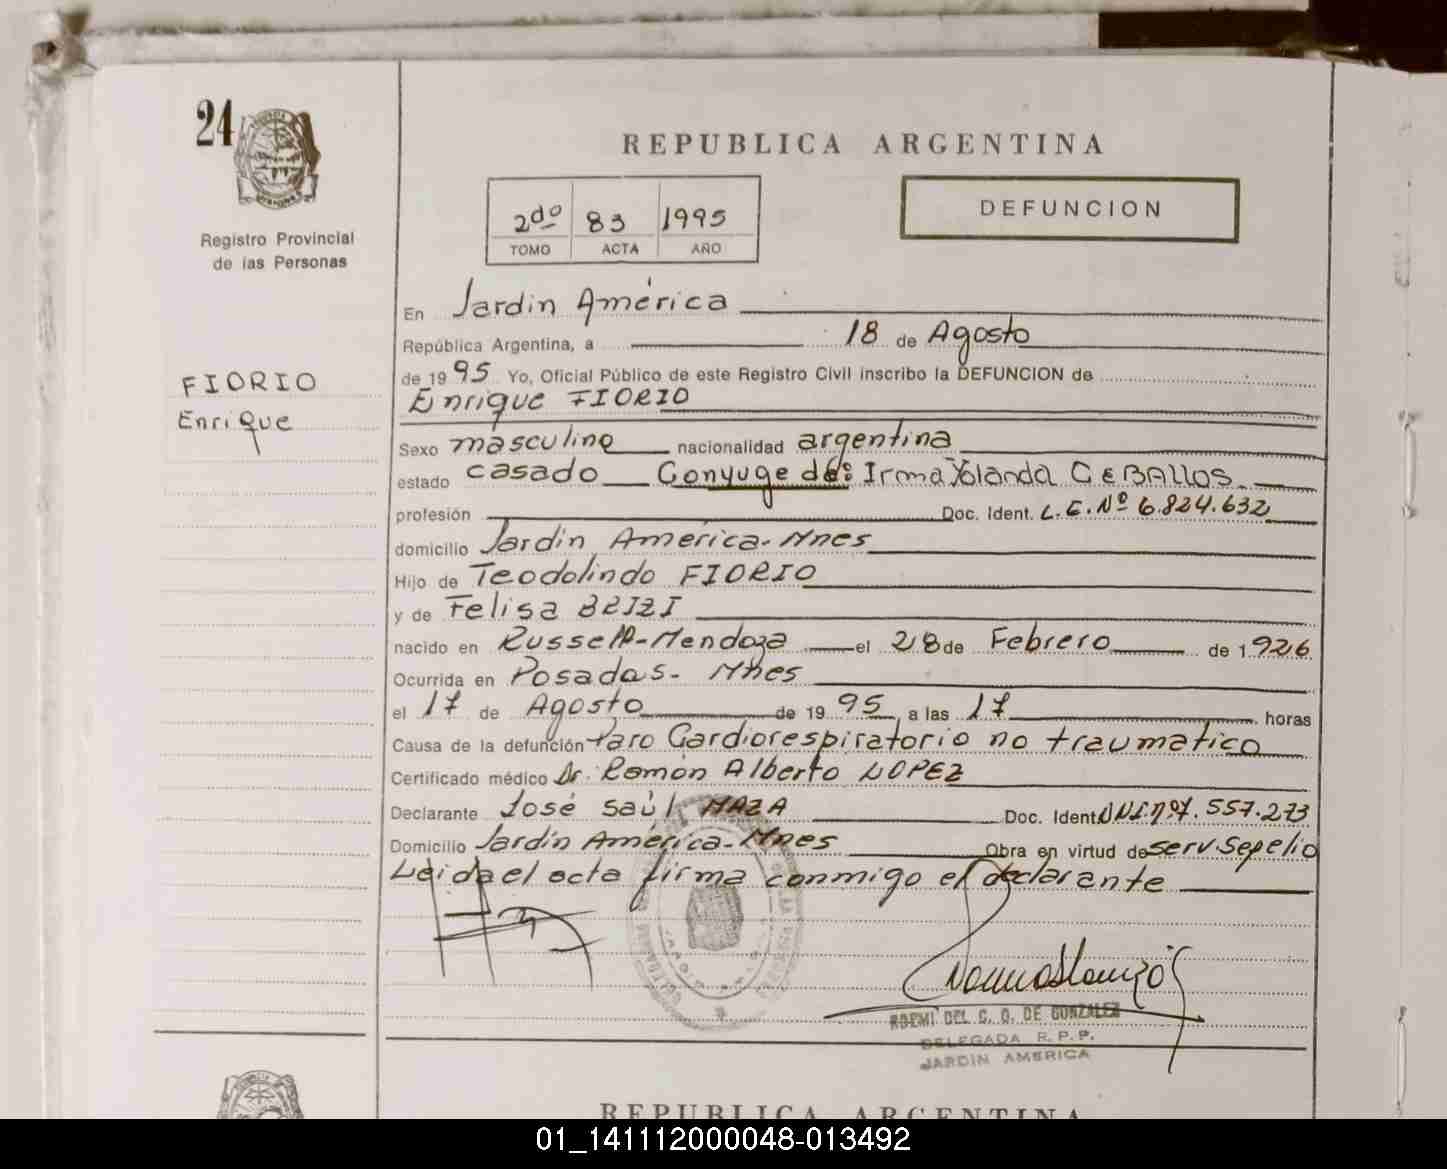 24
Registro Provincial
de las Personas
FIORIO
Enrique
REPUBLICA ARGENTINA
2do 83 1995
TOMO ACTA AÑO
DEFUNCION
En Jardin América
República Argentina, a 18 de Agosto
de 1995 Yo, Oficial Público de este Registro Civil inscribo la DEFUNCION de
Enrique FIORIO
Sexo masculino nacionalidad argentina
estado casado Conyuge de: Irma Yolanda CEBALLOS
profesión Doc. Ident. L.E.Nº 6.824.632
domicilio Jardin América-Mnes
Hijo de Teodolindo FIORIO
y de Felisa BRIZI
nacido en Russell-Mendoza el 28 de Febrero de 1.926
Ocurrida en Posadas- Mnes
el 17 de Agosto de 1995 a las 17 horas
Causa de la defunción Paro Cardiorespiratorio no traumatico
Certificado médico Dr. Ramón Alberto LOPEZ
Declarante José Saúl MAZA Doc. Ident. DNI.nº7.557.273
Domicilio Jardín América-Mnes Obra en virtud de serv.Sepelio
Leida el acta firma conmigo el declarante
NOEMI DEL C. O. DE GONZALEZ
DELEGADA R.P.P.
JARDIN AMERICA
REPUBLICA ARGENTINA
01_141112000048-013492